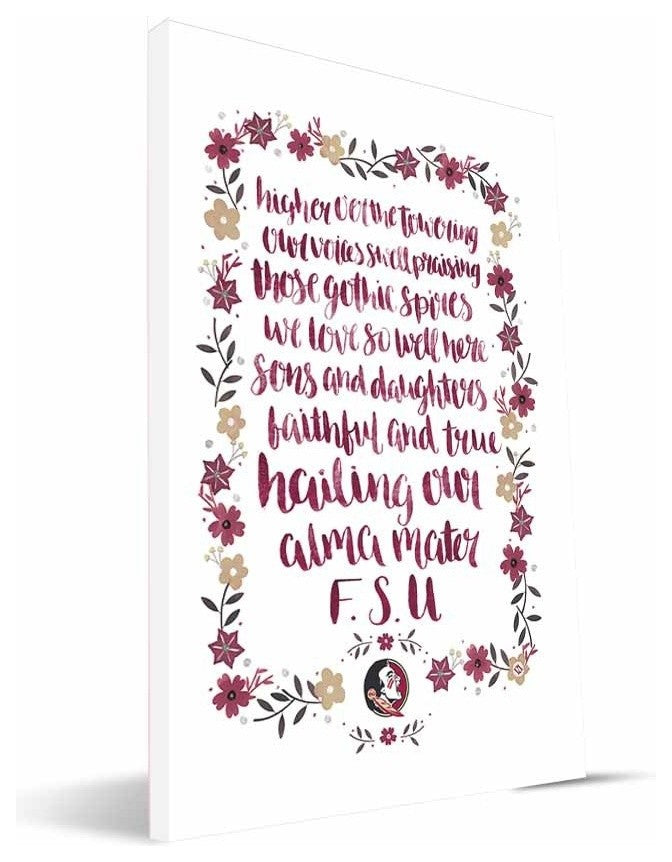 higher o'er the towering
our voices swell praising
those gothic spires
we love so well here
sons and daughters
faithful and true
hailing our
alma mater
F. S. U